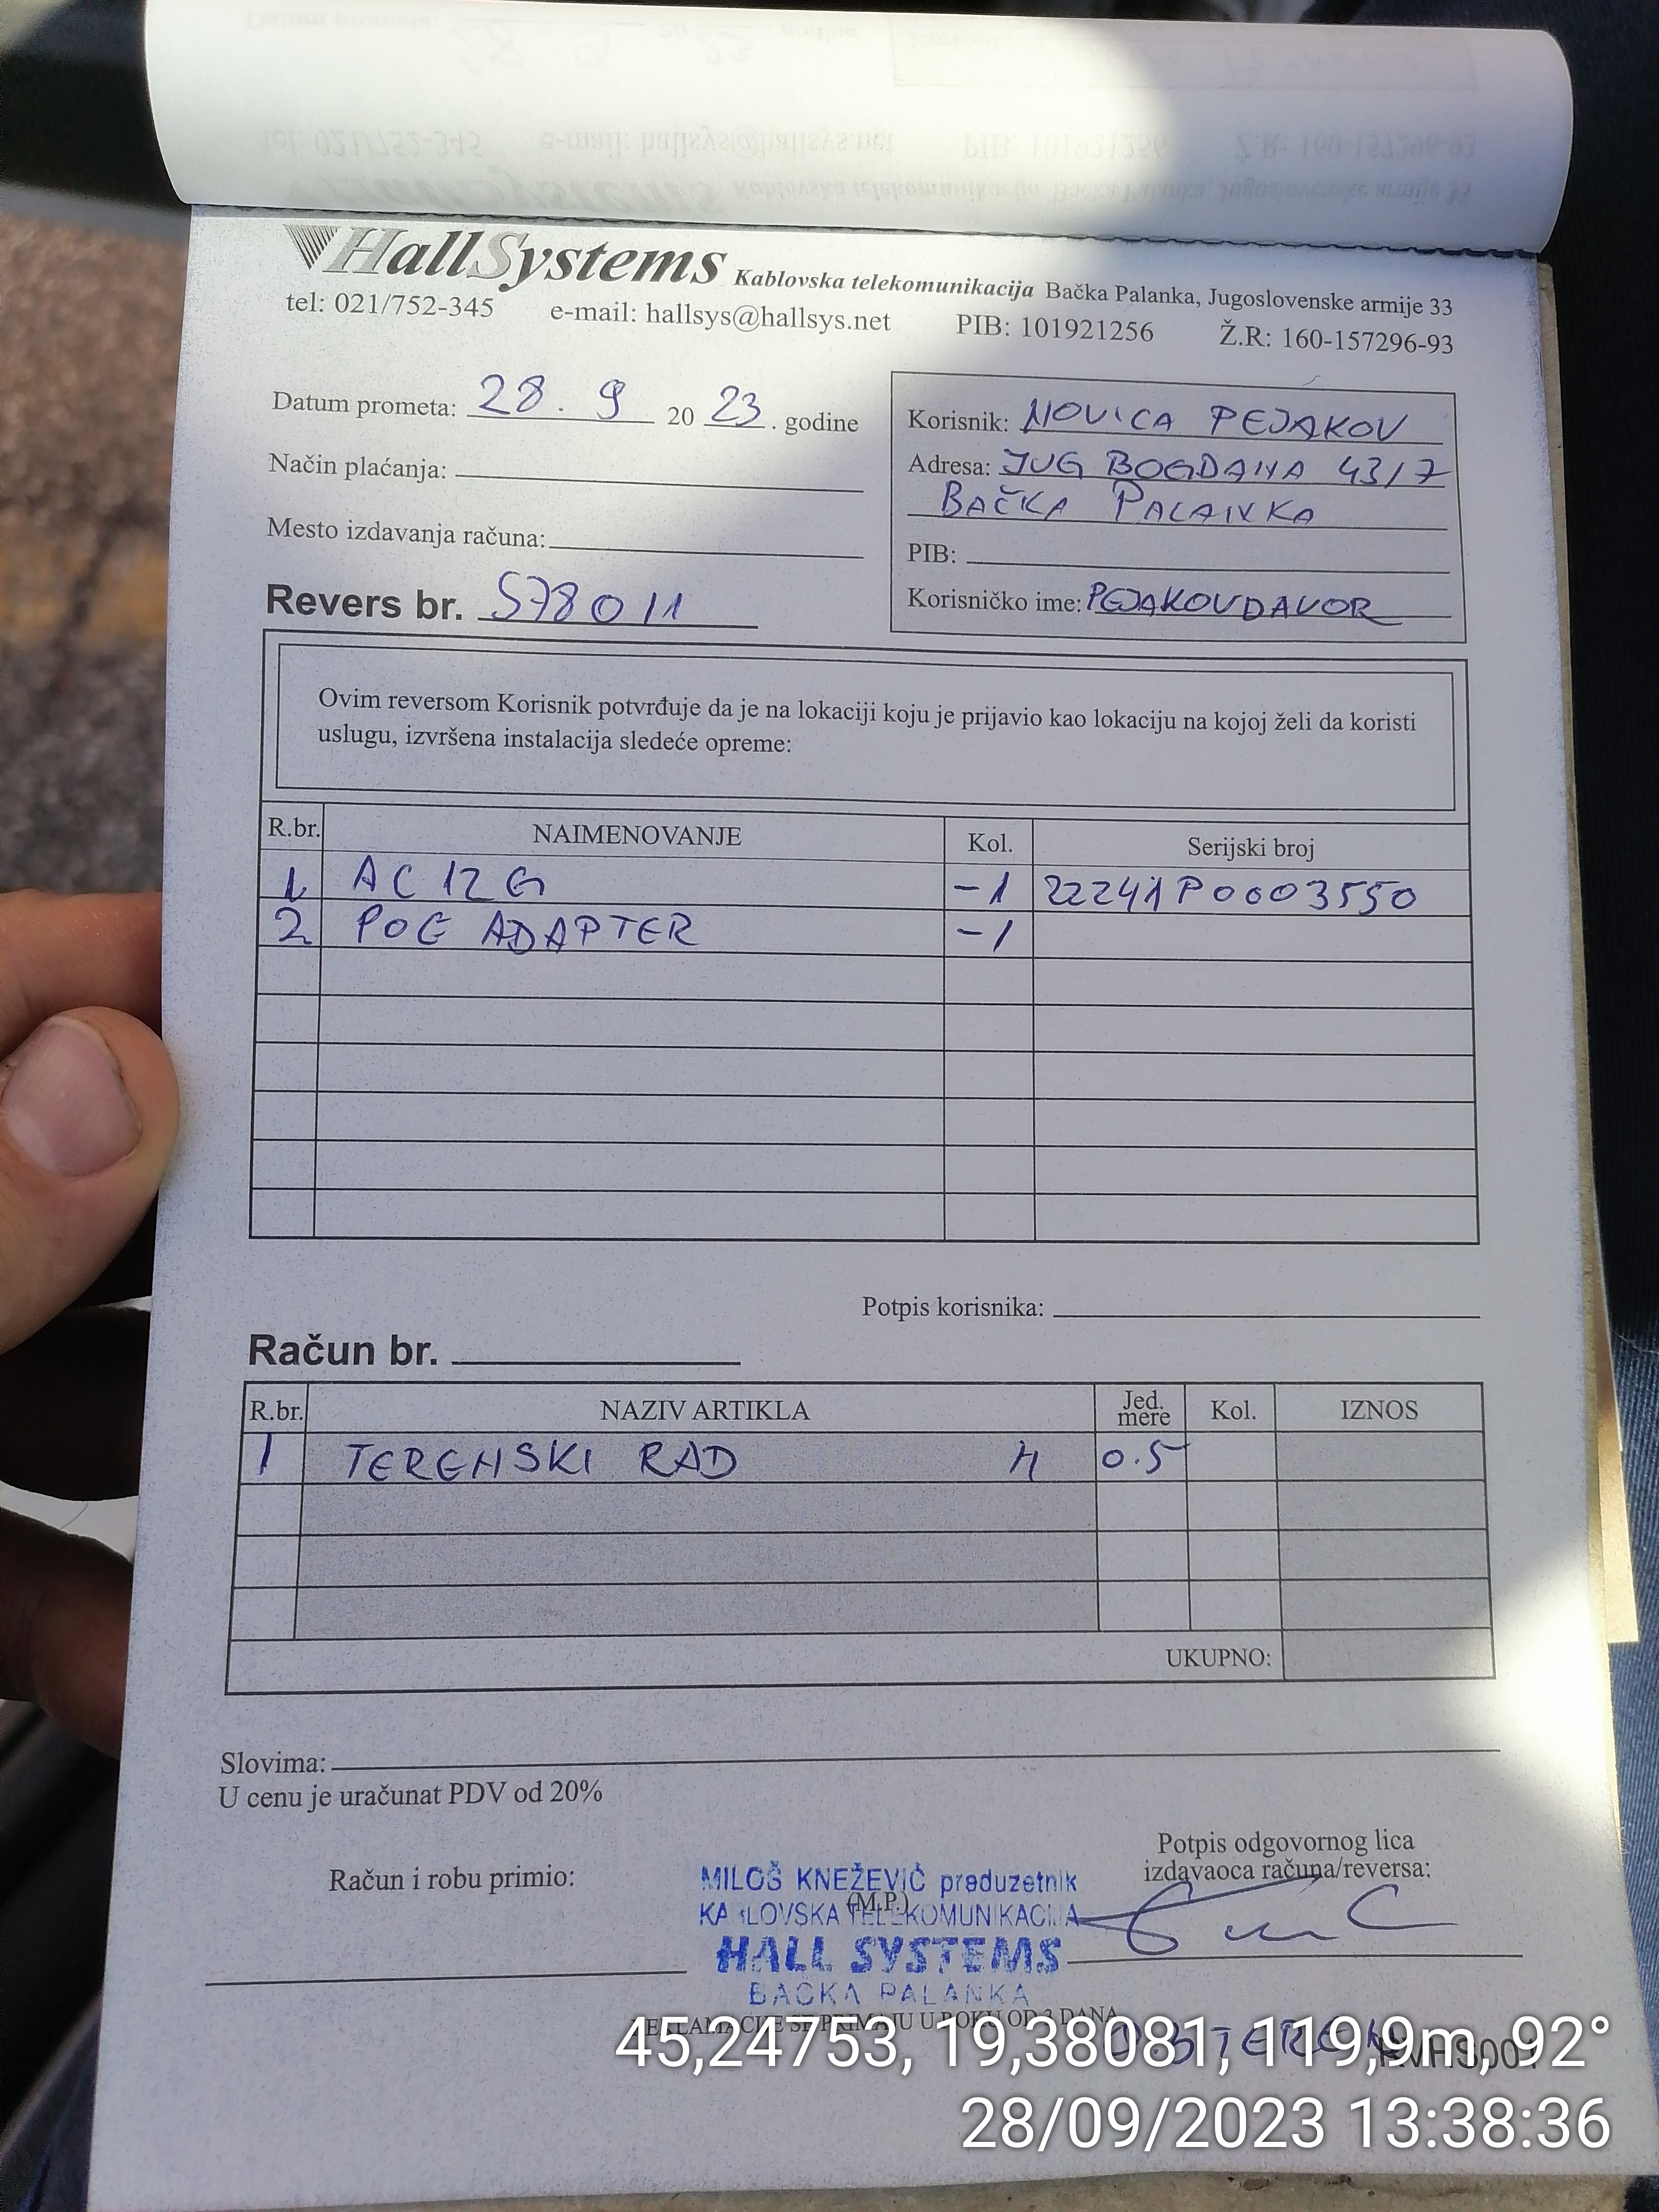 HallSystems Kablovska telekomunikacija Bačka Palanka, Jugoslovenske armije 33
tel: 021/752-345 e-mail: hallsys@hallsys.net PIB: 101921256 Ž.R: 160-157296-93
Datum prometa: 28. 9 20 23. godine
Način plaćanja:
Mesto izdavanja računa:
Revers br. S78011
Korisnik: NOVICA PEJAKOV
Adresa: JUG BOGDANA 43/7
BAČKA PALANKA
PIB:
Korisničko ime: PEJAKOVDAVOR
Ovim reversom Korisnik potvrđuje da je na lokaciji koju je prijavio kao lokaciju na kojoj želi da koristi
uslugu, izvršena instalacija sledeće opreme:
R.br. NAIMENOVANJE Kol. Serijski broj
1 AC 12 G -1 22241P0003550
2 POE ADAPTER -1
Potpis korisnika:
Račun br.
R.br. NAZIV ARTIKLA Jed. mere Kol. IZNOS
1 TERENSKI RAD H 0.5
UKUPNO:
Slovima:
U cenu je uračunat PDV od 20%
Račun i robu primio:
Potpis odgovornog lica
izdavaoca računa/reversa:
MILOŠ KNEŽEVIĆ preduzetnik
(M.P.)
KABLOVSKA TELEKOMUNIKACIJA
HALL SYSTEMS
BAČKA PALANKA
REKLAMACIJE SE PRIMAJU U ROKU OD 3 DANA
45,24753, 19,38081, 119,9m, 92°
28/09/2023 13:38:36